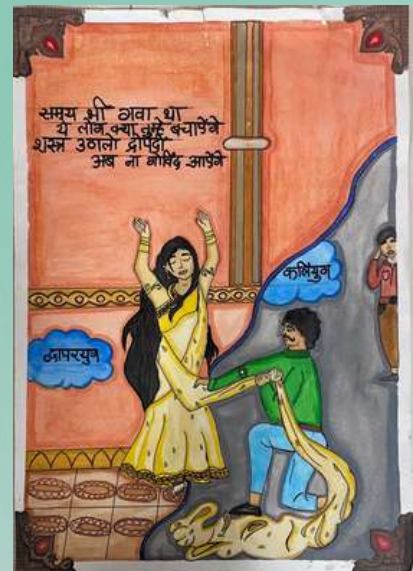 समय भी गवा था
ये लोग क्या तुम्हे बचाऐंगे
शस्त्र उठालो द्रोपदी
अब ना गोविंद आऐंगे
कलियुग
द्वापरयुग